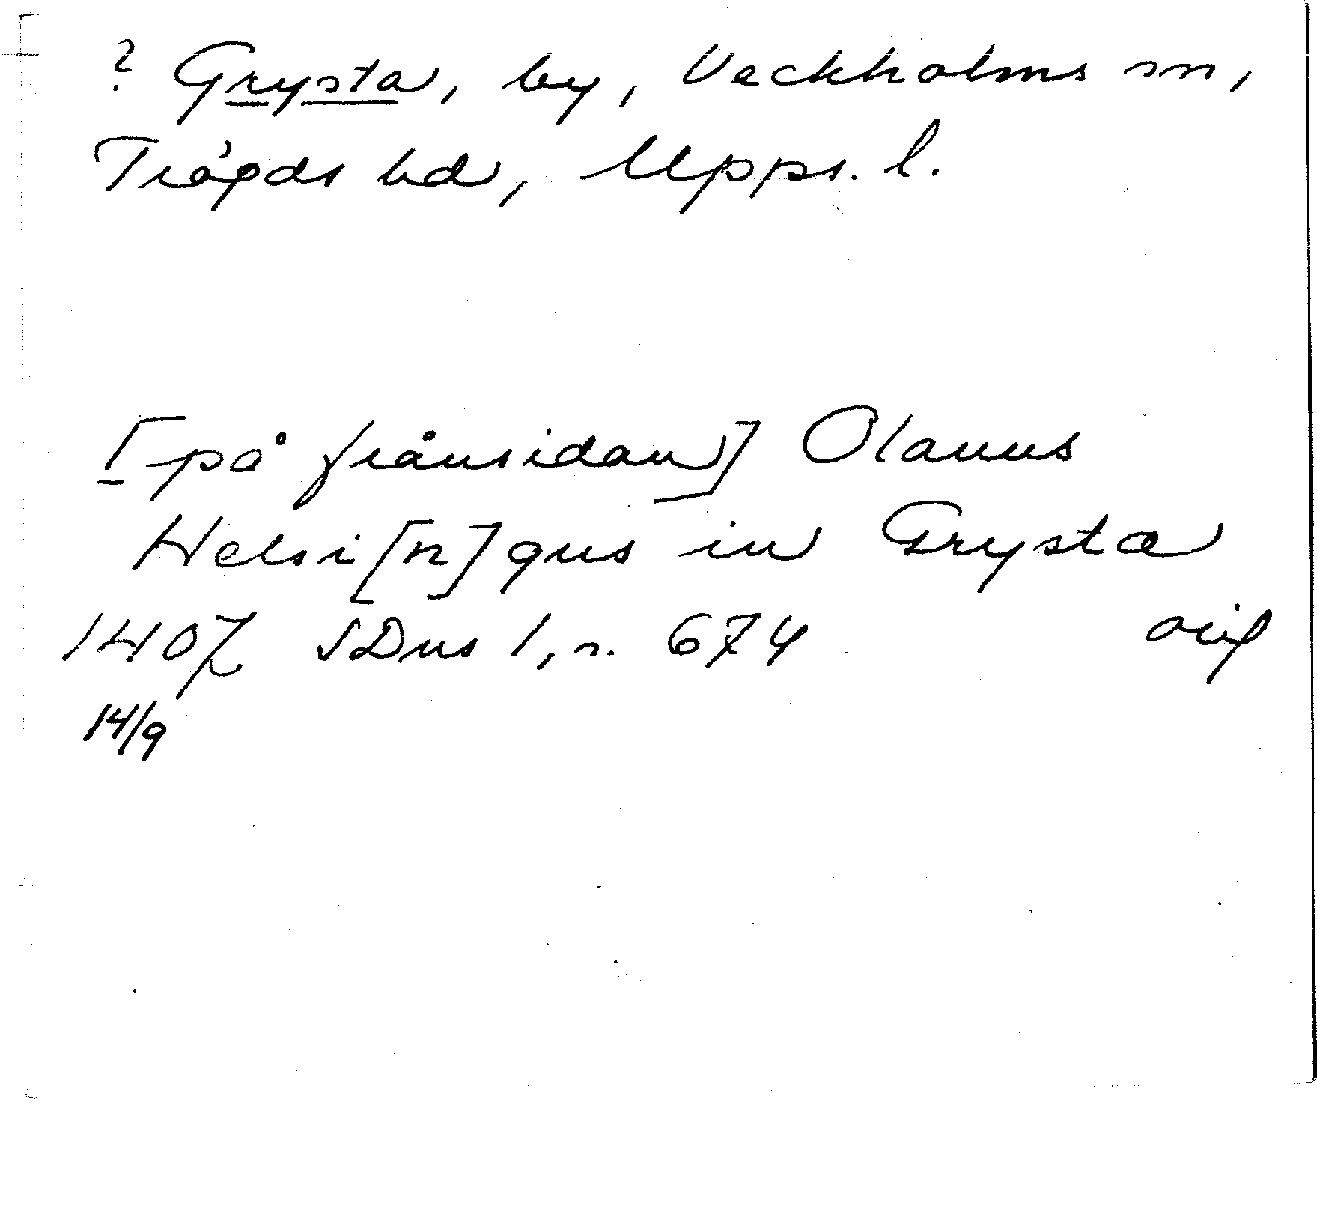 ? Grysta, by, Veckholms sn,
Trögds hd, Upps. l.
[på frånsidan] Olauus
Helsi[n]gus in Grysta
1407 SDns 1, s. 674 orig
14/9